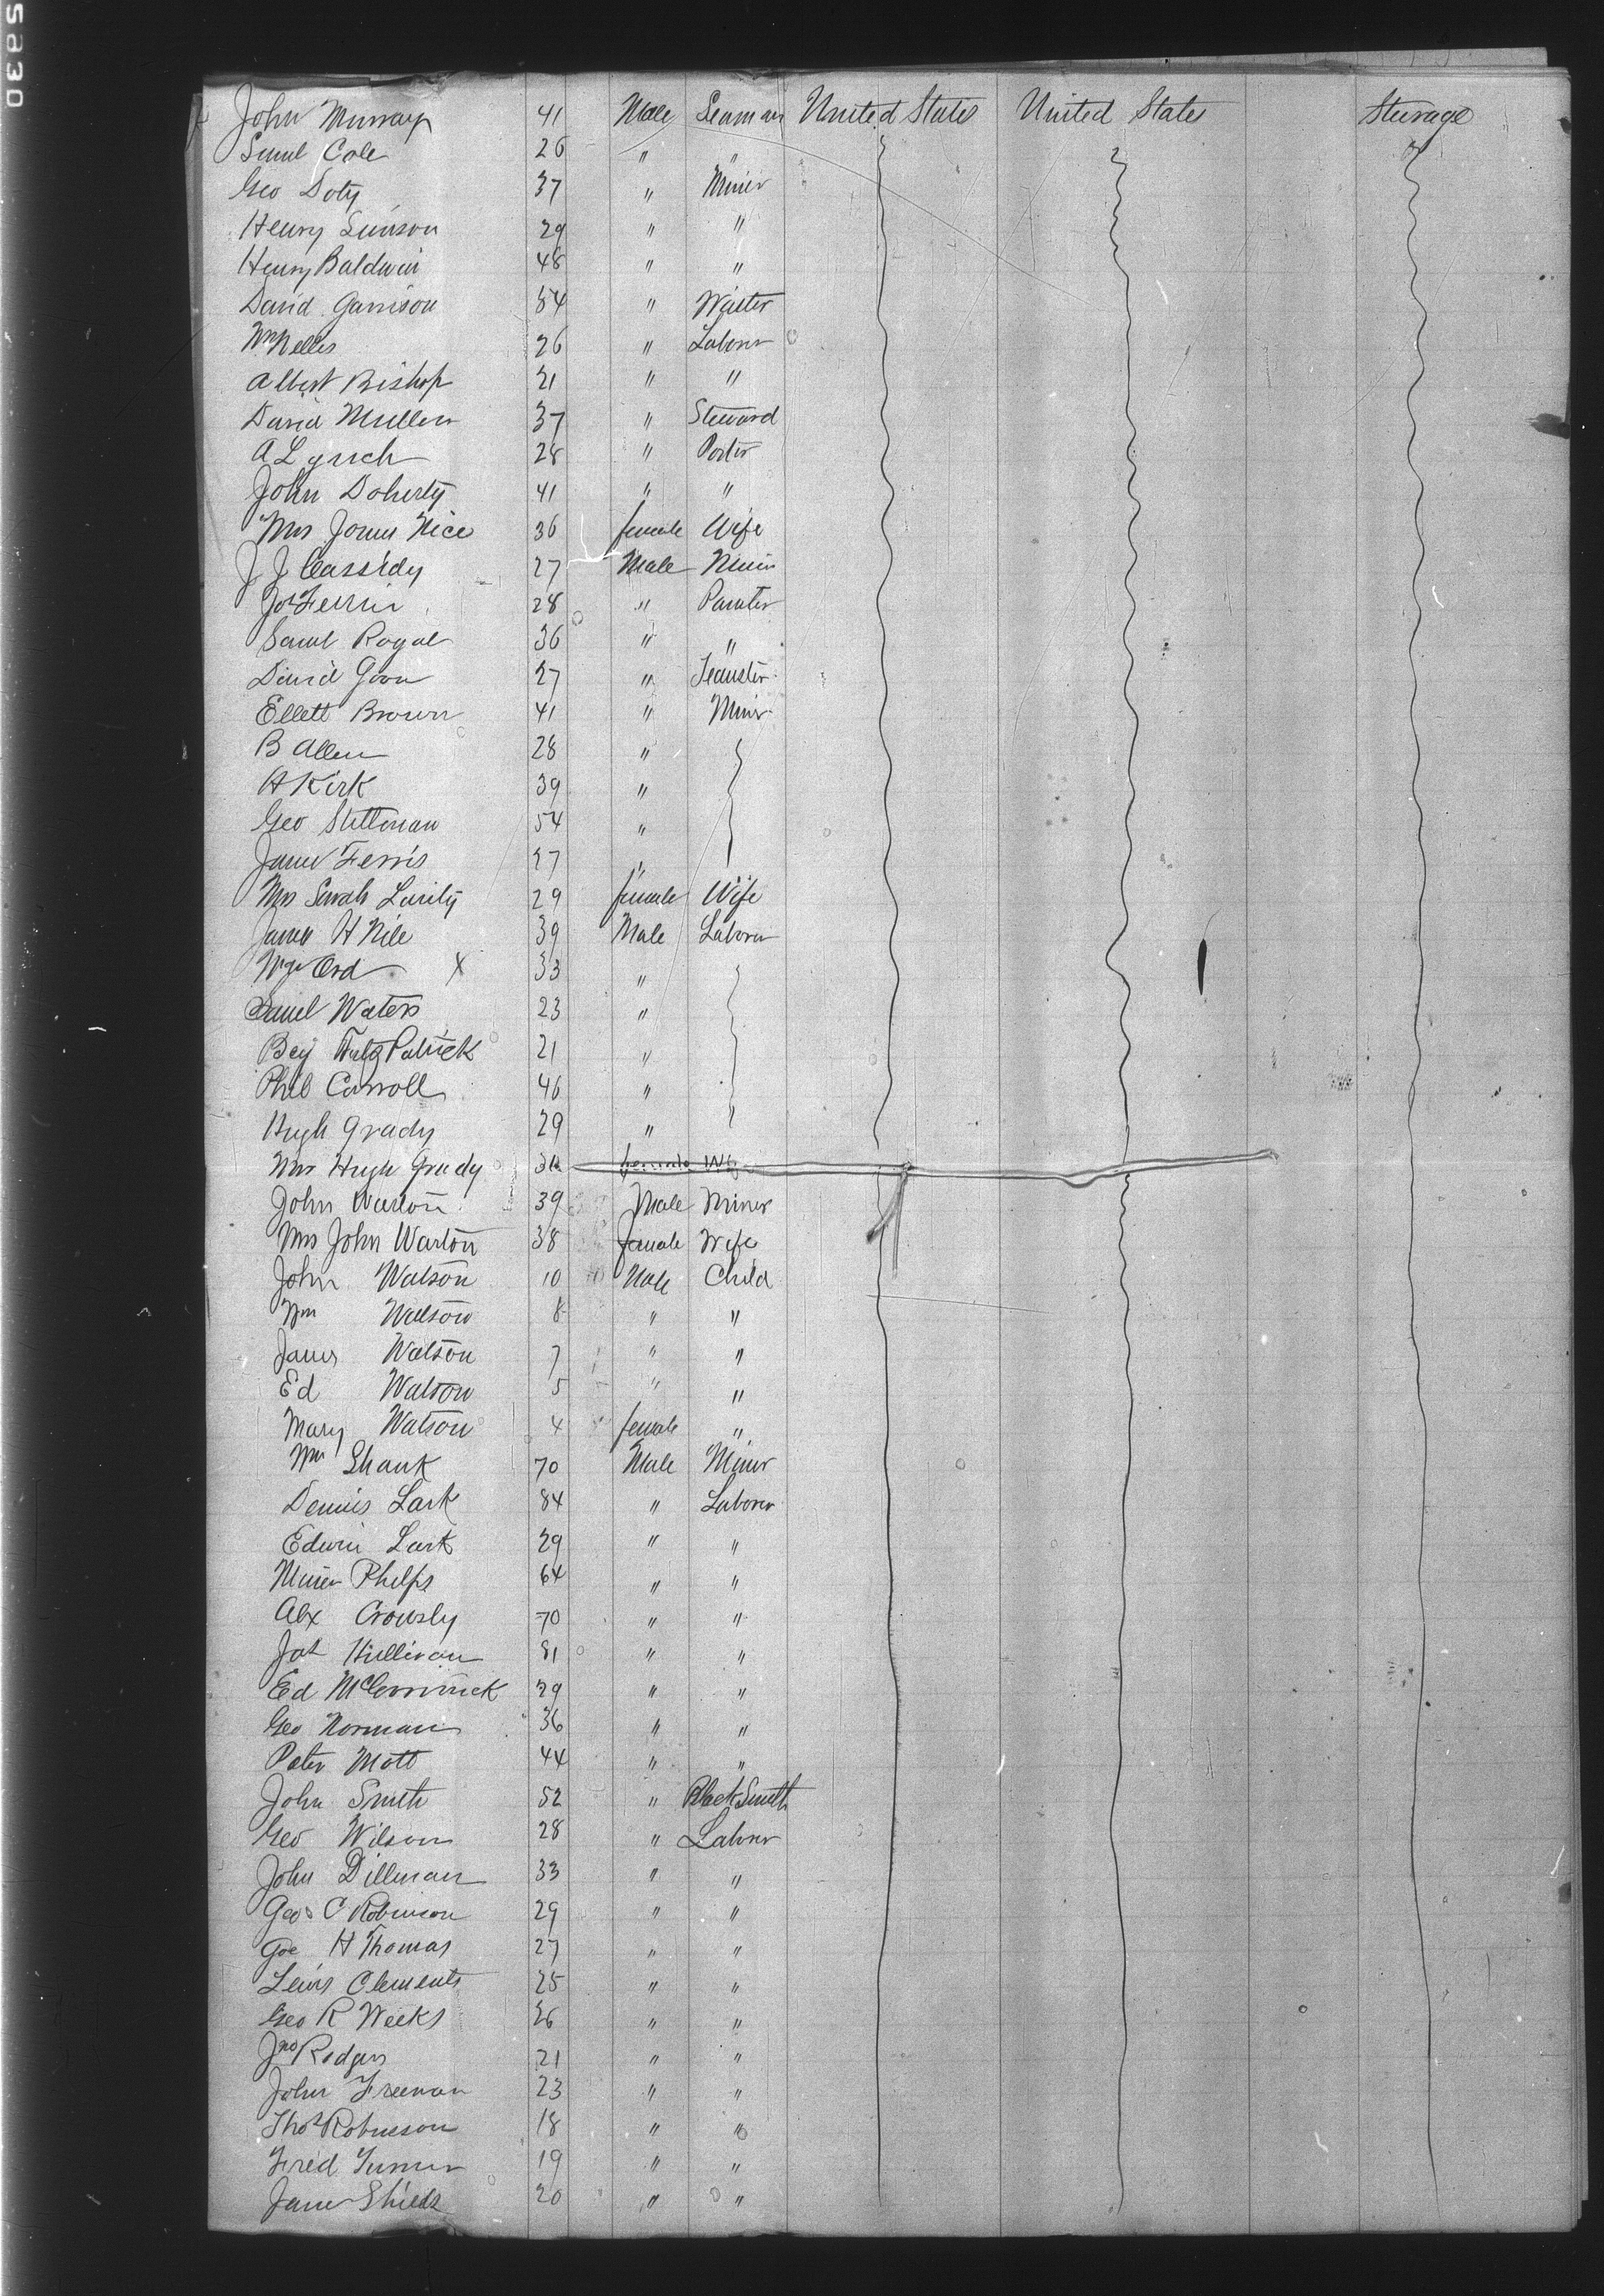 Sa30
John Murray 41 Male Seaman United States United States Sturage
Saml Cole 26 " "
Geo Doty 37 " Miner
Henry Simson 29 " "
Henry Baldwin 48 " "
David Garrison 54 " Waiter
Wm Nelles 26 " Laborer
Albert Bishop 21 " "
David Mullen 37 " Steward
A Lynch 28 " Porter
John Doherty 41 " "
Mrs James Nice 36 female Wife
J J Cassidy 27 Male Miner
Jos Ferrin 28 " Painter
Saml Royal 36 " "
David Goon 27 " Teamster
Ellett Brown 41 " Miner
B Allen 28 "
H Kirk 39 "
Geo Stettman 54 "
James Ferris 27 "
Mrs Sarah 29 female Wife
James H Nile 39 Male Laborer
Wm Ord X 33 "
Daniel Waters 23 "
Patrick 21 "
Phil Carroll 46 "
Hugh Grady 29 " "
Mrs Hugh Grady female
John Warton 39 Male Miner
Mrs John Warton 38 female Wife
John Watson 10 Male Child
Wm Watson 8 " "
James Watson 7 " "
Ed Watson 5 " "
Mary Watson 4 female "
Wm Shank 70 Male Miner
Dennis Lark 84 " Laborer
Edwin Lark 29 " "
Phelps 64 " "
Alx Crously 70 " "
Hillivan 81 " "
Ed McCormick 29 " "
Geo Norman 36 " "
Peter Mott 44 " "
John Smith 52 " BlackSmith
Geo Wilson 28 " Laborer
John Dillman 33 " "
Geo C Robinson 29 " "
H Thomas 27 " "
Lewis Clements 25 " "
Geo R Weeks 26 " "
Jno Rodgers 21 " "
John Freeman 23 " "
Thos Robinson 18 " "
Fred Turner 19 " "
James Shields 20 " "